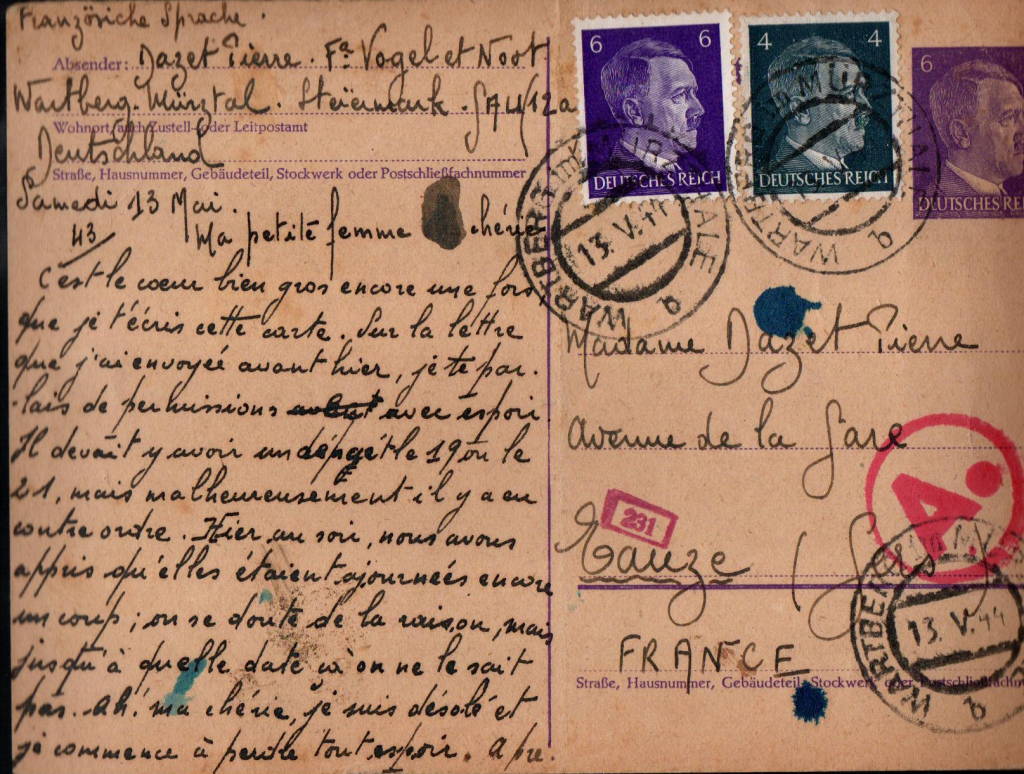 Französiche Sprache.
Absender: Dazet Pierre. Fa Vogel et Noot
Wartberg. Mürztal. Steiermark.
Wohnort, auch Zustell- oder Leitpostamt
Deutschland
Straße, Hausnummer, Gebäudeteil, Stockwerk oder Postschließfachnummer
Samedi 13 Mai.
43
Ma petite femme chérie
C'est le cœur bien gros encore une fois,
que je t'écris cette carte. Sur la lettre
que j'ai envoyée avant hier, je te par.
lais de permissions avec espoir.
Il devait y avoir un départ le 19 ou le
21, mais malheureusement il y a eu
contre ordre. Hier au soir, nous avons
appris qu'elles étaient ajournées encore
un coup; on se doute de la raison, mais
jusqu'à quelle date ça on ne le sait
pas. Ah! ma chérie, je suis désolé et
je commence à perdre tout espoir. Apre.
6 6
DEUTSCHES REICH
4 4
DEUTSCHES REICH
6
DEUTSCHES REI
WARTBERG im MÜRZTALE
13.V.44
b
WARTBERG im MÜRZTALE
b
Madame Dazet Pierre
Avenue de la Gare
231
A.
Eauze (Gers)
FRANCE
Straße, Hausnummer, Gebäudeteil, Stockwerk oder Postschließfachnu
WARTBERG im M
13.V.44
b